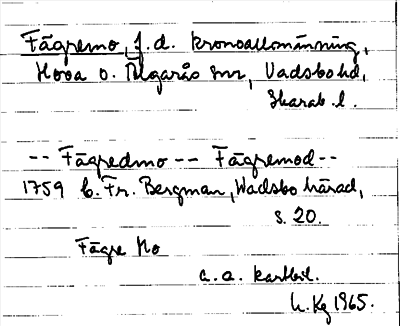 Fägremo, f.d. kronoallmänning,
Hova o. Älgarås snr, Vadsbo hd,
Skarab. l.
-- Fägredmo -- Fägremod --
1759 C. Fr. Bergman, Wadsbo härad,
s. 20.
Fägre Mo
a. a. kartbil.
1965.